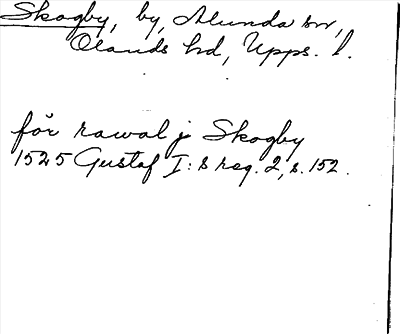 Skogby, by, Alunda sn,
Olands hd, Upps. l.
för rawal j Skogby
1525 Gustaf I:s reg. 2, s. 152.